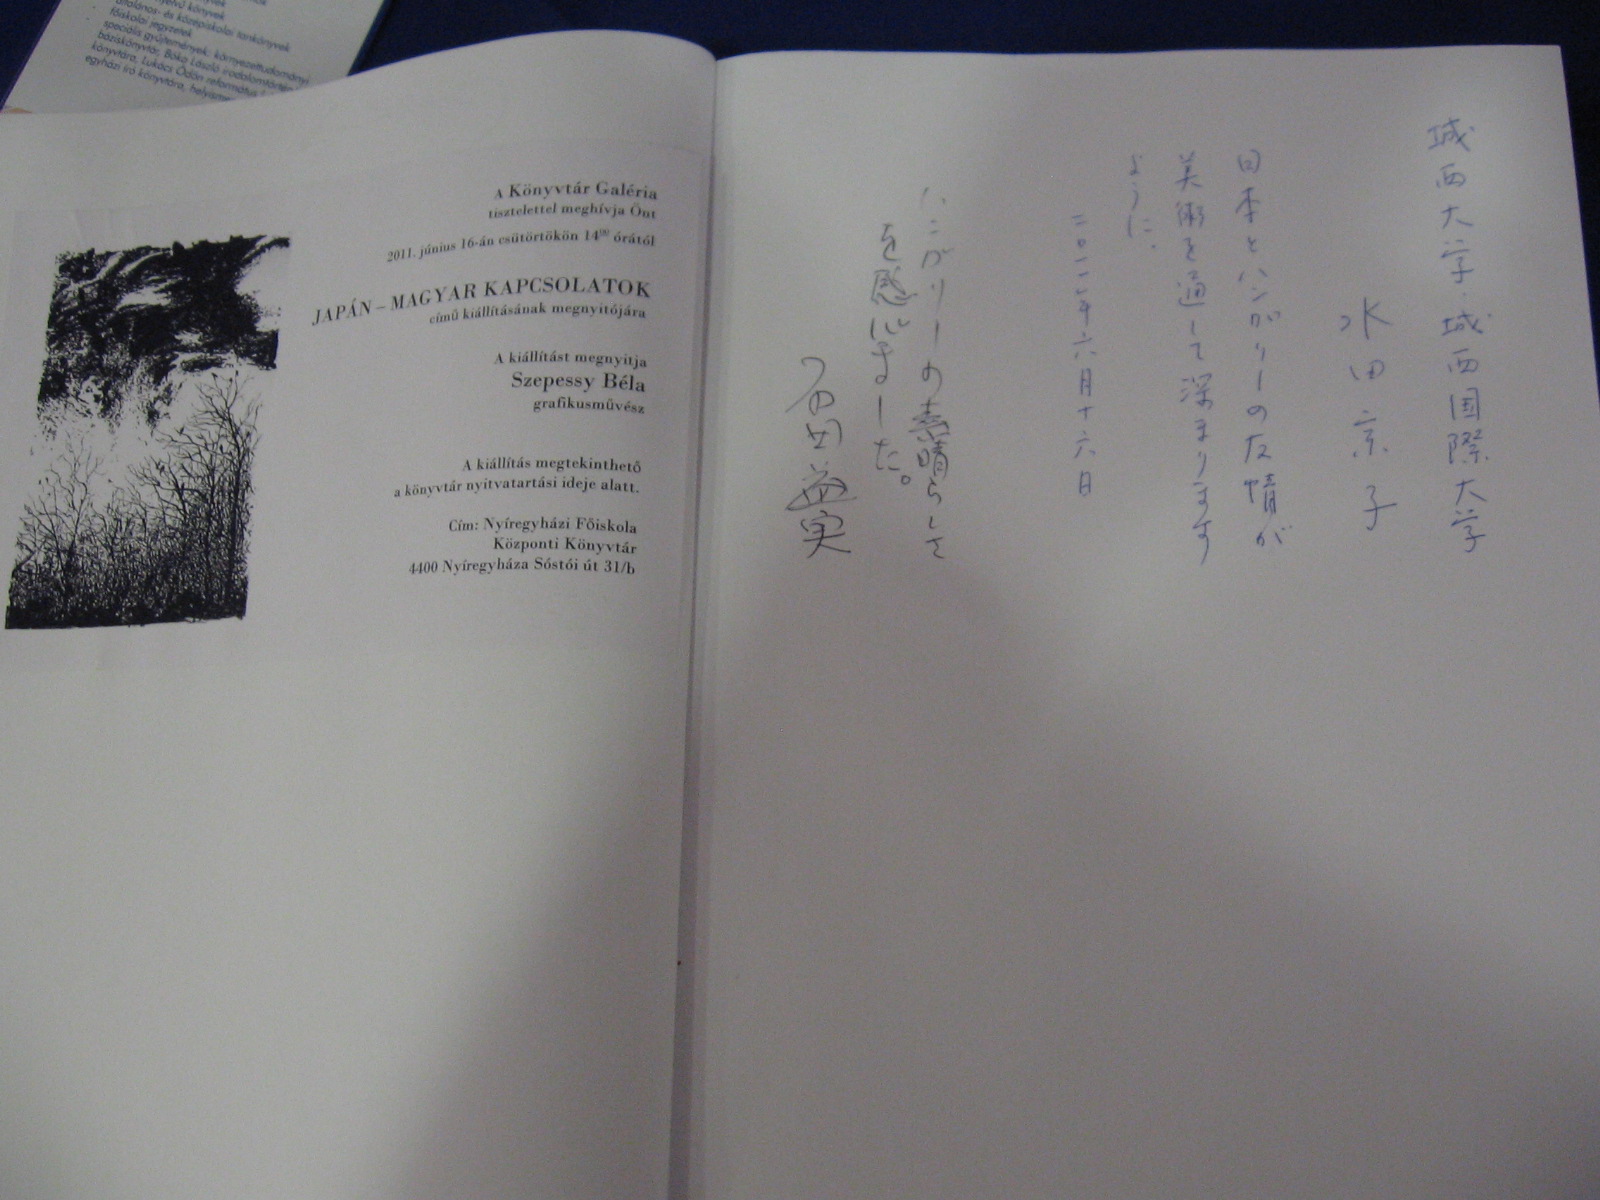 általános- és középiskolai tankönyvek
főiskolai jegyzetek
speciális gyűjtemények: környezettudományi
báziskönyvtár, Bóka László irodalomtörtén
könyvtára, Lukács Ödön református
egyházi író könyvtára, helyismer
A Könyvtár Galéria
tisztelettel meghívja Önt
2011. június 16-án csütörtökön 14⁰⁰ órától
JAPÁN – MAGYAR KAPCSOLATOK
című kiállításának megnyitójára
A kiállítást megnyitja
Szepessy Béla
grafikusművész
A kiállítás megtekinthető
a könyvtár nyitvatartási ideje alatt.
Cím: Nyíregyházi Főiskola
Központi Könyvtár
4400 Nyíregyháza Sóstói út 31/b
城西大学・城西国際大学
水田宗子
日本とハンガリーの友情が
美術を通して深まります
ように、
二〇一一年六月十六日
ハンガリーの素晴らしさ
を感じました。
石田益実